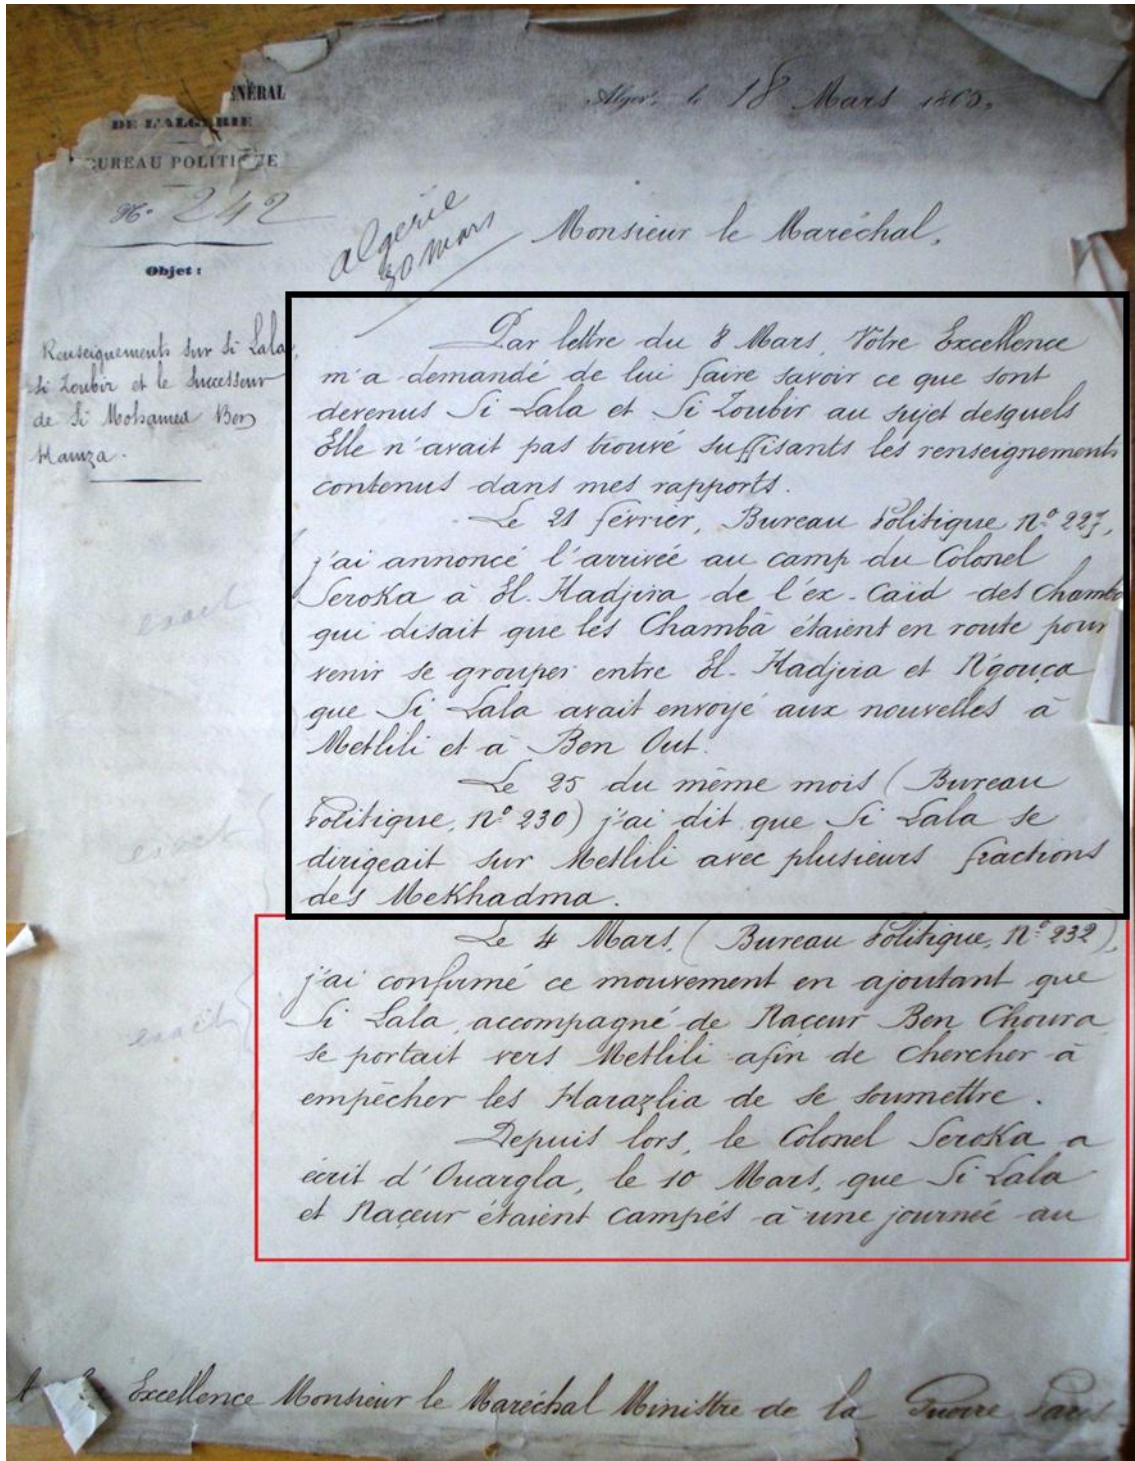 NÉRAL
DE L'ALGÉRIE
BUREAU POLITIQUE
N.o 242
Objet :
Renseignements sur Si Lala,
Si Zoubir et le Successeur
de Si Mohamed Ben
Hamza.
Alger, le 18 Mars 1865.
algérie
30 mars
Monsieur le Maréchal,
Par lettre du 8 Mars, Votre Excellence
m'a demandé de lui faire savoir ce que sont
devenus Si Lala et Si Zoubir au sujet desquels
Elle n'avait pas trouvé suffisants les renseignements
contenus dans mes rapports.
Le 21 février, Bureau Politique, N.o 227,
j'ai annoncé l'arrivée au camp du Colonel
Seroka à El. Hadjira de l'ex-Caïd des Chamba
qui disait que les Chambâ étaient en route pour
venir se grouper entre El-Hadjira et N'gouça
que Si Lala avait envoyé aux nouvelles à
Metlili et à Ben Out.
Le 25 du même mois (Bureau
Politique, N.o 230) j'ai dit que Si Lala se
dirigeait sur Metlili avec plusieurs fractions
des Mekhadma.
Le 4 Mars, (Bureau Politique, N.o 232),
j'ai confirmé ce mouvement en ajoutant que
Si Lala, accompagné de Naçeur Ben Choura
se portait vers Metlili afin de chercher à
empêcher les Harazlia de se soumettre.
Depuis lors, le Colonel Seroka a
écrit d'Ouargla, le 10 Mars, que Si Lala
et Naçeur étaient campés à une journée au
exact
exact
exact
Excellence Monsieur le Maréchal Ministre de la Guerre Paris